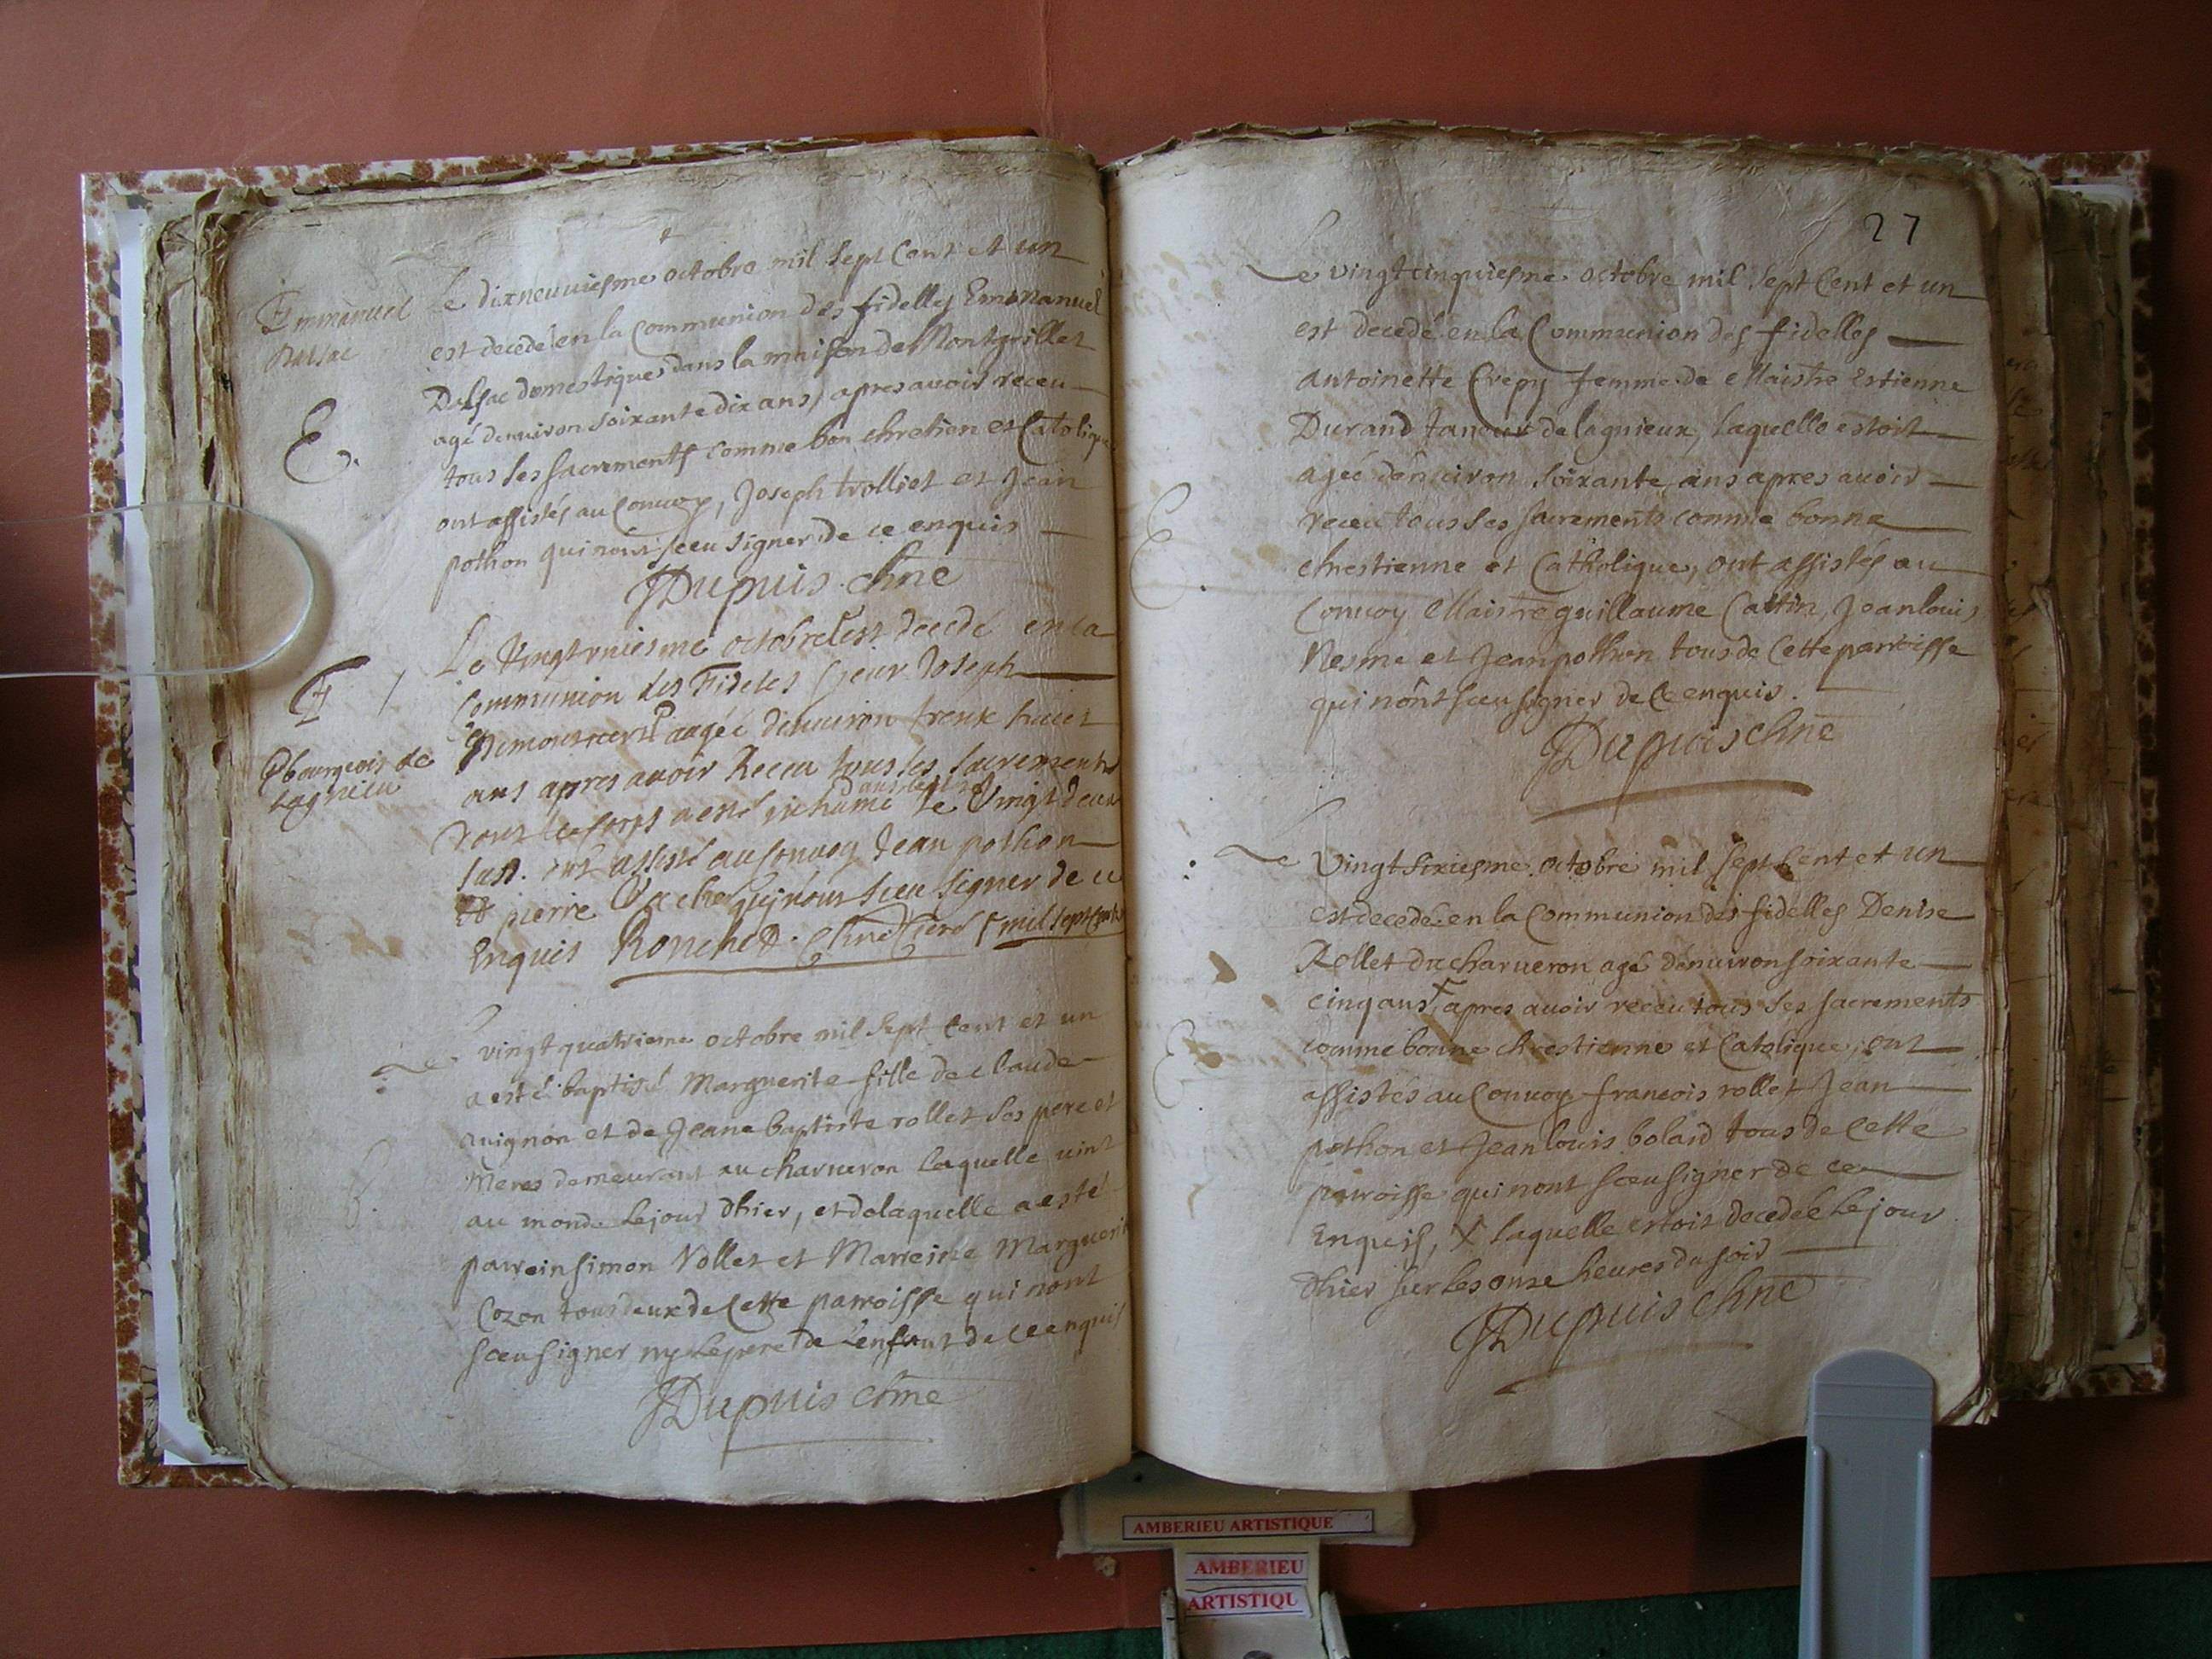 Emmanuel
Le dixneuviesme octobre mil sept Cent et un
est decedé en la Communion des fidelles Emmanuel
Dalsac domestique dans la maison de Montgrillet
agé denuiron soixante dix ans, apres auoir receu
tous ses sacrements comme bon chretien et Catolique
E.
ont assistés au Conuoy, Joseph trolliet et Jean
pothon qui nont sceu signer de ce enquis
JDupuis chne
Le Vingt vniesme octobre est decedé en la
Communion des Fideles sieur Joseph
aagée denuiron trente huict
E
bourgeois de
Lagnieu
ans apres auoir Receu tous les sacrements
dont le corps a esté inhumé le Vingt deux
ont assisté au Conuoy Jean pothon
et pierre Vacher qui nont sceu signer de ce
Enquis Ronchet
mil sept Cent
Le vingt quatrieme octobre mil sept Cent et un
a esté baptisé Marguerite fille de Claude
auignon et de Jeane baptiste rollet ses pere et
meres demeurant au charueron laquelle uint
B.
au monde le jour dhier, et de laquelle a esté
parrein simon Vollet et Marreine Marguerite
Cozon tous deux de Cette parroisse qui nont
sceu signer ny le pere de Lenfant de ce enquis
JDupuis chne
27
Le vingtcinquiesme octobre mil sept Cent et un
est decedé en la Communion des fidelles
Antoinette Crepy femme de Maistre Estienne
Durand taneur de lagnieux, laquelle estoit
agéé dénuiron soixante ans apres auoir
E.
receu tous ses sacrements comme bonne
chrestienne et Catholique, ont assistés au
Conuoy Maistre guillaume Cattin, Jean louis
Nesme et Jean pothon tous de Cette parroisse
qui nônt sceu signer de Ce enquis.
JDupuis chne
Le Vingt sixiesme octobre mil sept Cent et un
est decedé en la Communion des fidelles Denise
Rollet du charueron agé dénuiron soixante
cinq ans, apres auoir receu tous ses sacrements
E
comme bonne chrestienne et Catolique, ont
assistés au Conuoy francois rollet Jean
pothon et Jean louis bolard tous de Cette
parroisse qui nont sceu signer de ce
Enquis, X laquelle estoit decedéé le jour
dhier sur les onze heures du soir
JDupuis chne
AMBERIEU ARTISTIQUE
AMBERIEU
ARTISTIQU